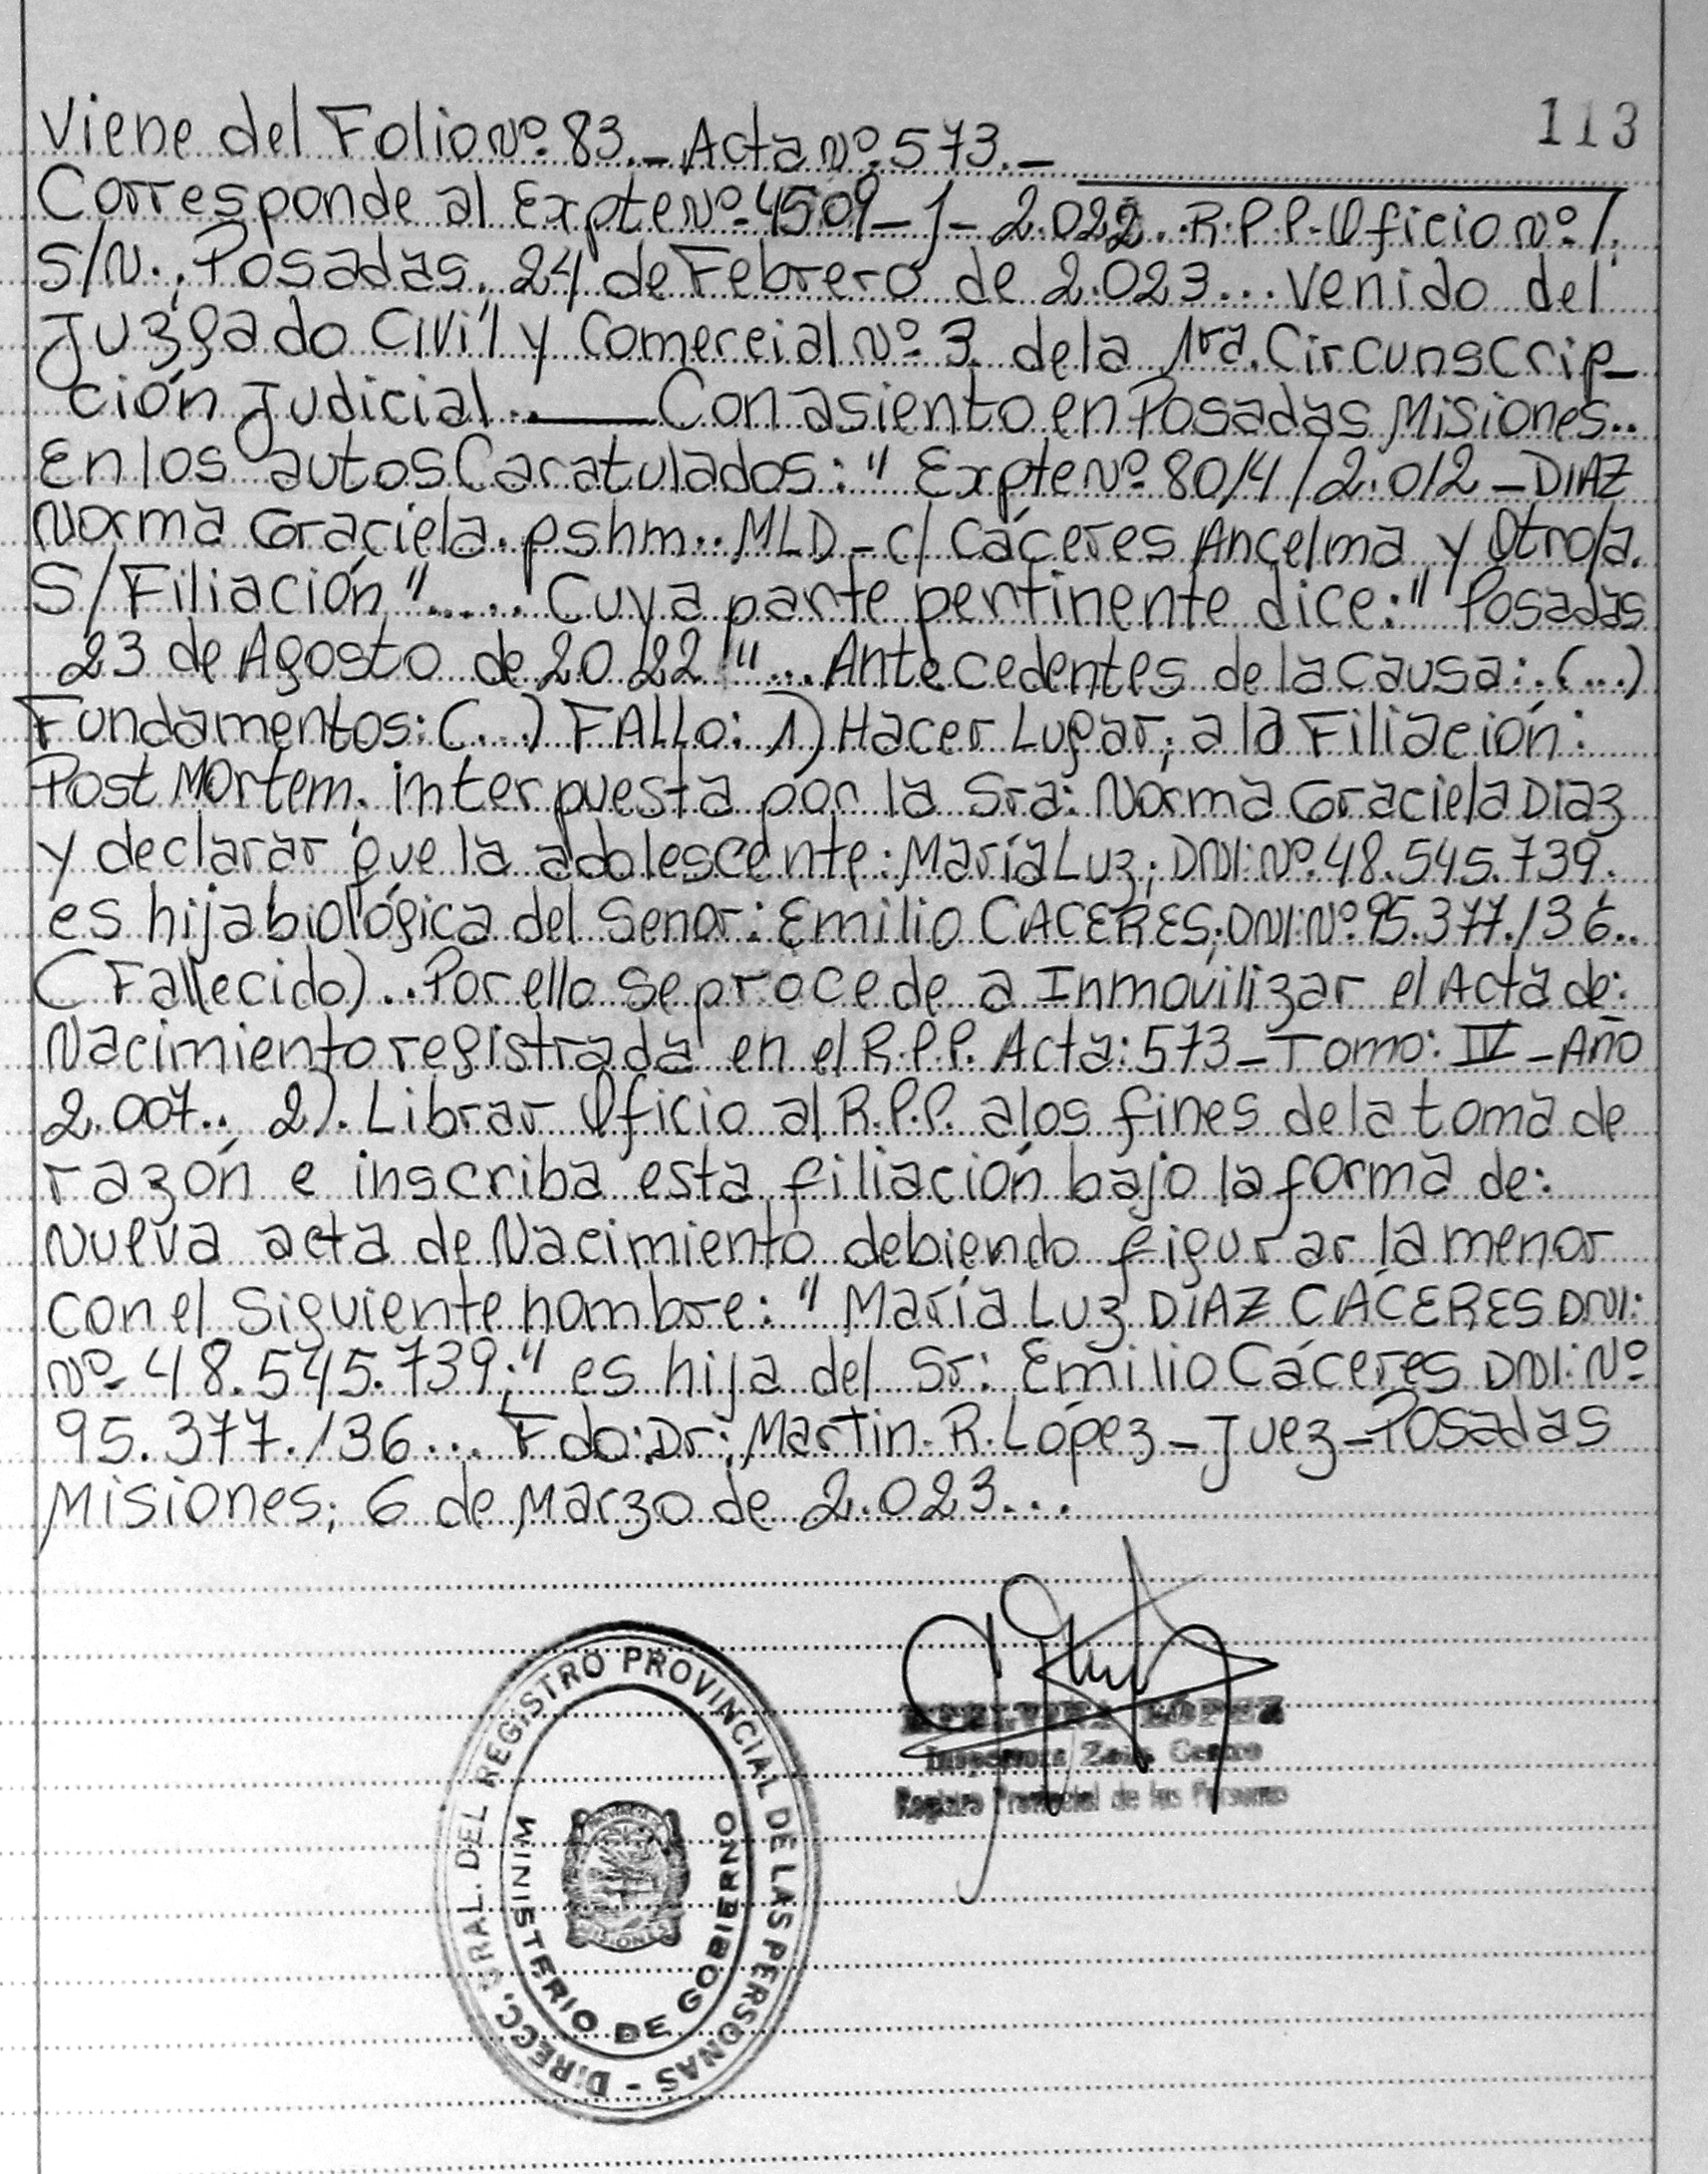 113
Viene del Folio Nº 83.- Acta Nº 573.-
Corresponde al Expte Nº 4509-J-2.022.. R.P.P. Oficio Nº/.
S/N.; Posadas, 24 de Febrero de 2.023... Venido del
Juzgado Civil y Comercial Nº 3. de la 1ra. Circunscrip-
ción Judicial.. Con asiento en Posadas Misiones..
En los autos Caratulados: "Expte Nº 8014/2.012 - DIAZ
Norma Graciela. pshm.. MLD - c/ Cáceres Ancelma y Otro/a.
S/Filiación"..... Cuya parte pertinente dice: "Posadas
23 de Agosto de 2022"... Antecedentes de la Causa: (...)
Fundamentos: (...) FALLO: 1) Hacer Lugar; a la Filiación:
Post Mortem. interpuesta por la Sra: Norma Graciela Diaz
y declarar que la adolescente: María Luz; DNI: Nº 48.545.739.
es hija biológica del Senor: Emilio CACERES; DNI: Nº 95.377.136..
(Fallecido)... Por ello se procede a Inmovilizar el Acta de:
Nacimiento registrada en el R.P.P. Acta: 573 - Tomo: IV - Año
2.007.. 2). Librar Oficio al R.P.P. a los fines de la toma de
razón e inscriba esta filiación bajo la forma de:
Nueva acta de Nacimiento debiendo figurar la menor
con el Siguiente nombre: "María Luz DÍAZ CÁCERES DNI:
Nº 48.545.739;" es hija del Sr: Emilio Cáceres DNI: Nº
95.377.136... Fdo: Dr: Martin. R. López - Juez - Posadas
Misiones; 6 de Marzo de 2.023...
DIRECC. GRAL. DEL REGISTRO PROVINCIAL DE LAS PERSONAS -
MINISTERIO DE GOBIERNO
LOPEZ
Inspectora Zona Centro
Registro Provincial de las Personas